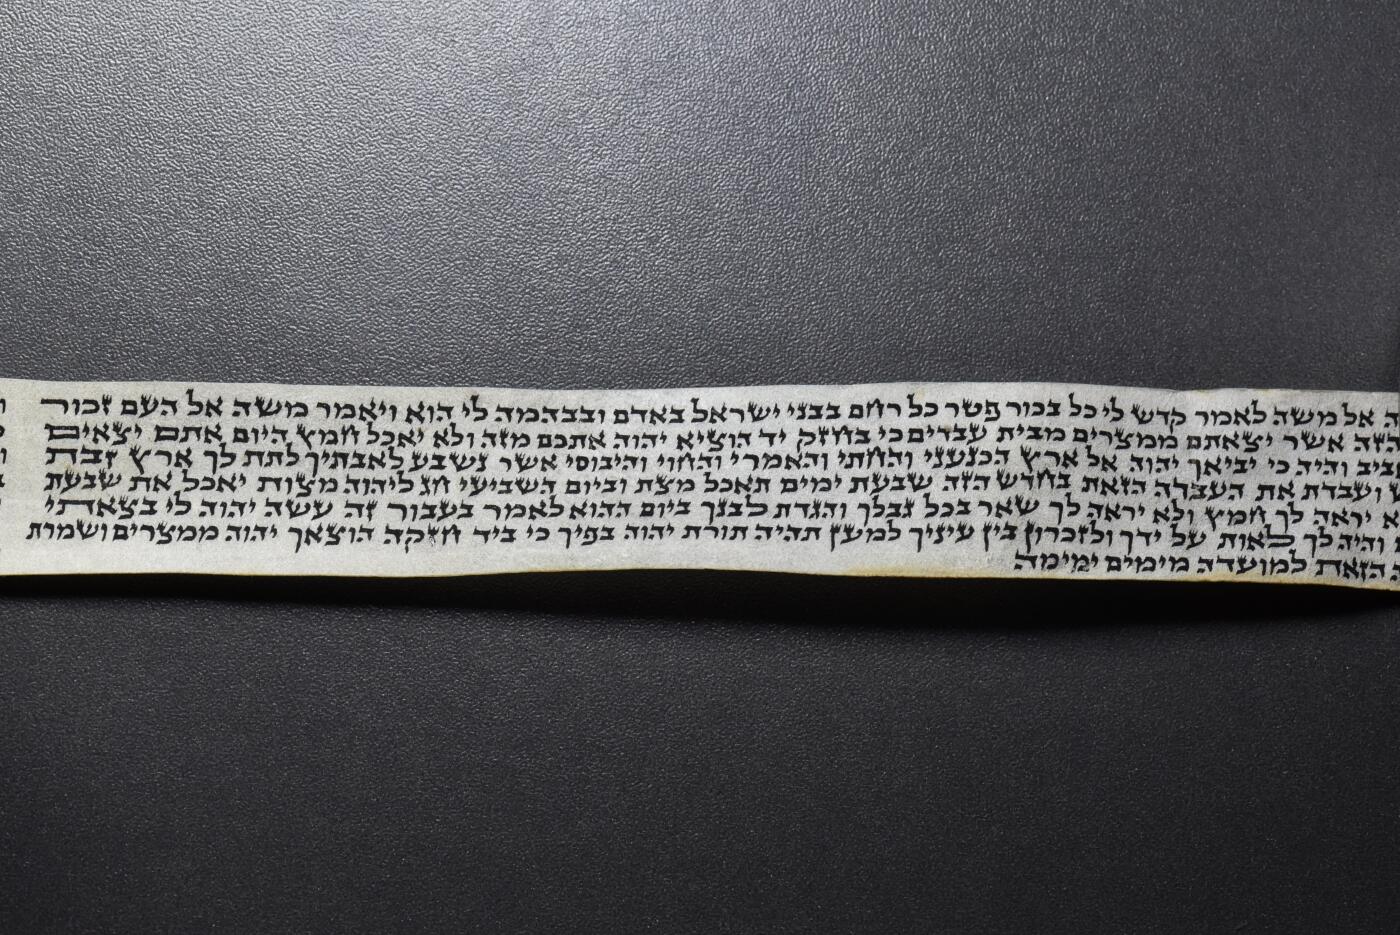 אל משה לאמר קדש לי כל בכור פטר כל רחם בבני ישראל באדם ובבהמה לי הוא ויאמר משה אל העם זכור
הזה אשר יצאתם ממצרים מבית עבדים כי בחזק יד הוציא יהוה אתכם מזה ולא יאכל חמץ היום אתם יצאים
והיה כי יביאך יהוה אל ארץ הכנעני והחתי והאמרי והחוי והיבוסי אשר נשבע לאבתיך לתת לך ארץ זבת
ועבדת את העבדה הזאת בחדש הזה שבעת ימים תאכל מצת וביום השביעי חג ליהוה מצות יאכל את שבעת
יראה לך חמץ ולא יראה לך שאר בכל גבלך והגדת לבנך ביום ההוא לאמר בעבור זה עשה יהוה לי בצאתי
והיה לך לאות על ידך ולזכרון בין עיניך למען תהיה תורת יהוה בפיך כי ביד חזקה הוצאך יהוה ממצרים ושמרת
הזאת למועדה מימים ימימה